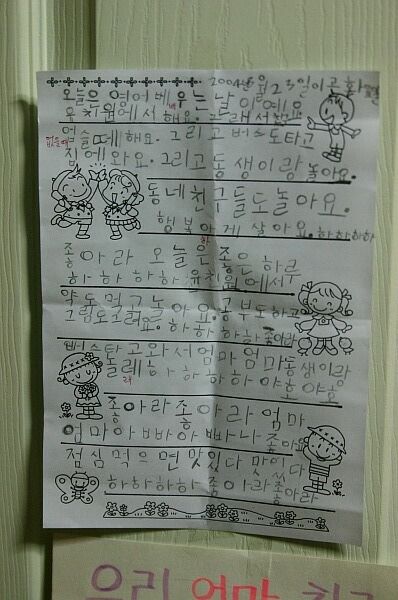 2004년 월 23일이금화
오늘은 영어 배우는 날이예요
유치원에서 해요. 그래서
없을때 해요. 그리고 버스도타고
집에와요. 그리고 동생이랑 놀아요.
동네친구들도놀아요.
행복하게 살아요. 하하하하
좋아라 오늘은 좋은 하루
하 하 하하 유치원에서
먹고 놀아요. 공부도하고
그림도그려요. 하하하하 좋아라
버스타고와서 엄마 엄마동생이랑
놀래 하 하하하 야호 야호
좋아라좋아라 엄마
엄마아빠아빠나좋아요
점심먹으면맛있다 마이
하하하하 좋아라좋아라
우리 엄마